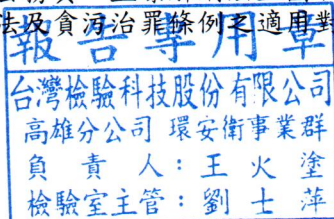 法及貪污治罪條例之適用對
報告專用章
台灣檢驗科技股份有限公司
高雄分公司 環安衛事業群
負責人：王火塗
檢驗室主管：劉士萍